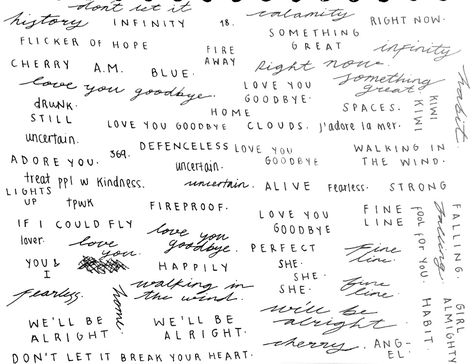 don't let it
calamity
history INFINITY 18. RIGHT NOW.
SOMETHING
GREAT
FLICKER OF HOPE
FIRE
AWAY
infinity
CHERRY A.M. BLUE.
Right now.
something
great
love you goodbye.
LOVE YOU
GOODBYE.
KIWI
KIWI
habit.
DRUNK.
STILL
HOME
SPACES.
LOVE YOU GOODBYE CLOUDS. j'adore la mer.
uncertain.
369. DEFENCELESS
LOVE YOU
GOODBYE
WALKING IN
THE WIND.
ADORE YOU.
uncertain.
treat ppl w kindness.
uncertain. ALIVE fearless. STRONG
LIGHTS
UP
tpwk FIREPROOF.
LOVE YOU
GOODBYE
FINE
LINE
FOOL FOR YOU.
falling.
FALLING.
IF I COULD FLY
lover.
love
you
love you
goodbye.
PERFECT
Fine
line.
YOU &
I
HAPPILY
SHE.
SHE.
SHE.
fine
line.
fearless.
home.
walking in
the wind.
HABIT.
GIRL
ALMIGHTY
we'll be
alright.
WE'LL BE
ALRIGHT.
WE'LL BE
ALRIGHT.
cherry. ANG-
EL.
DON'T LET IT BREAK YOUR HEART.